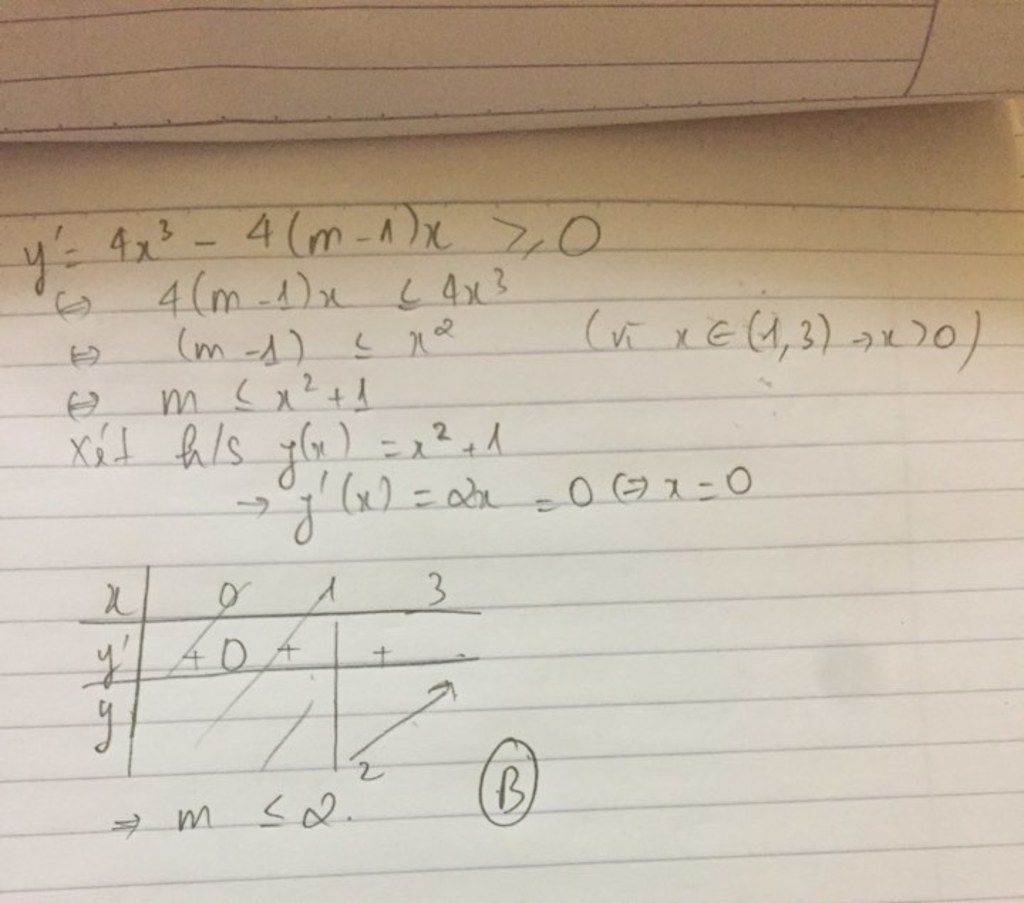 y' = 4x³ - 4(m-1)x ≥ 0
⇔ 4(m-1)x ≤ 4x³
⇔ (m-1) ≤ x² (vì x ∈ (1,3) → x>0)
⇔ m ≤ x² + 1
Xét h/s y(x) = x² + 1
→ y'(x) = 2x = 0 ⇔ x = 0
x 0 1 3
y' + 0 + +
y
2
⇒ m ≤ 2.
B